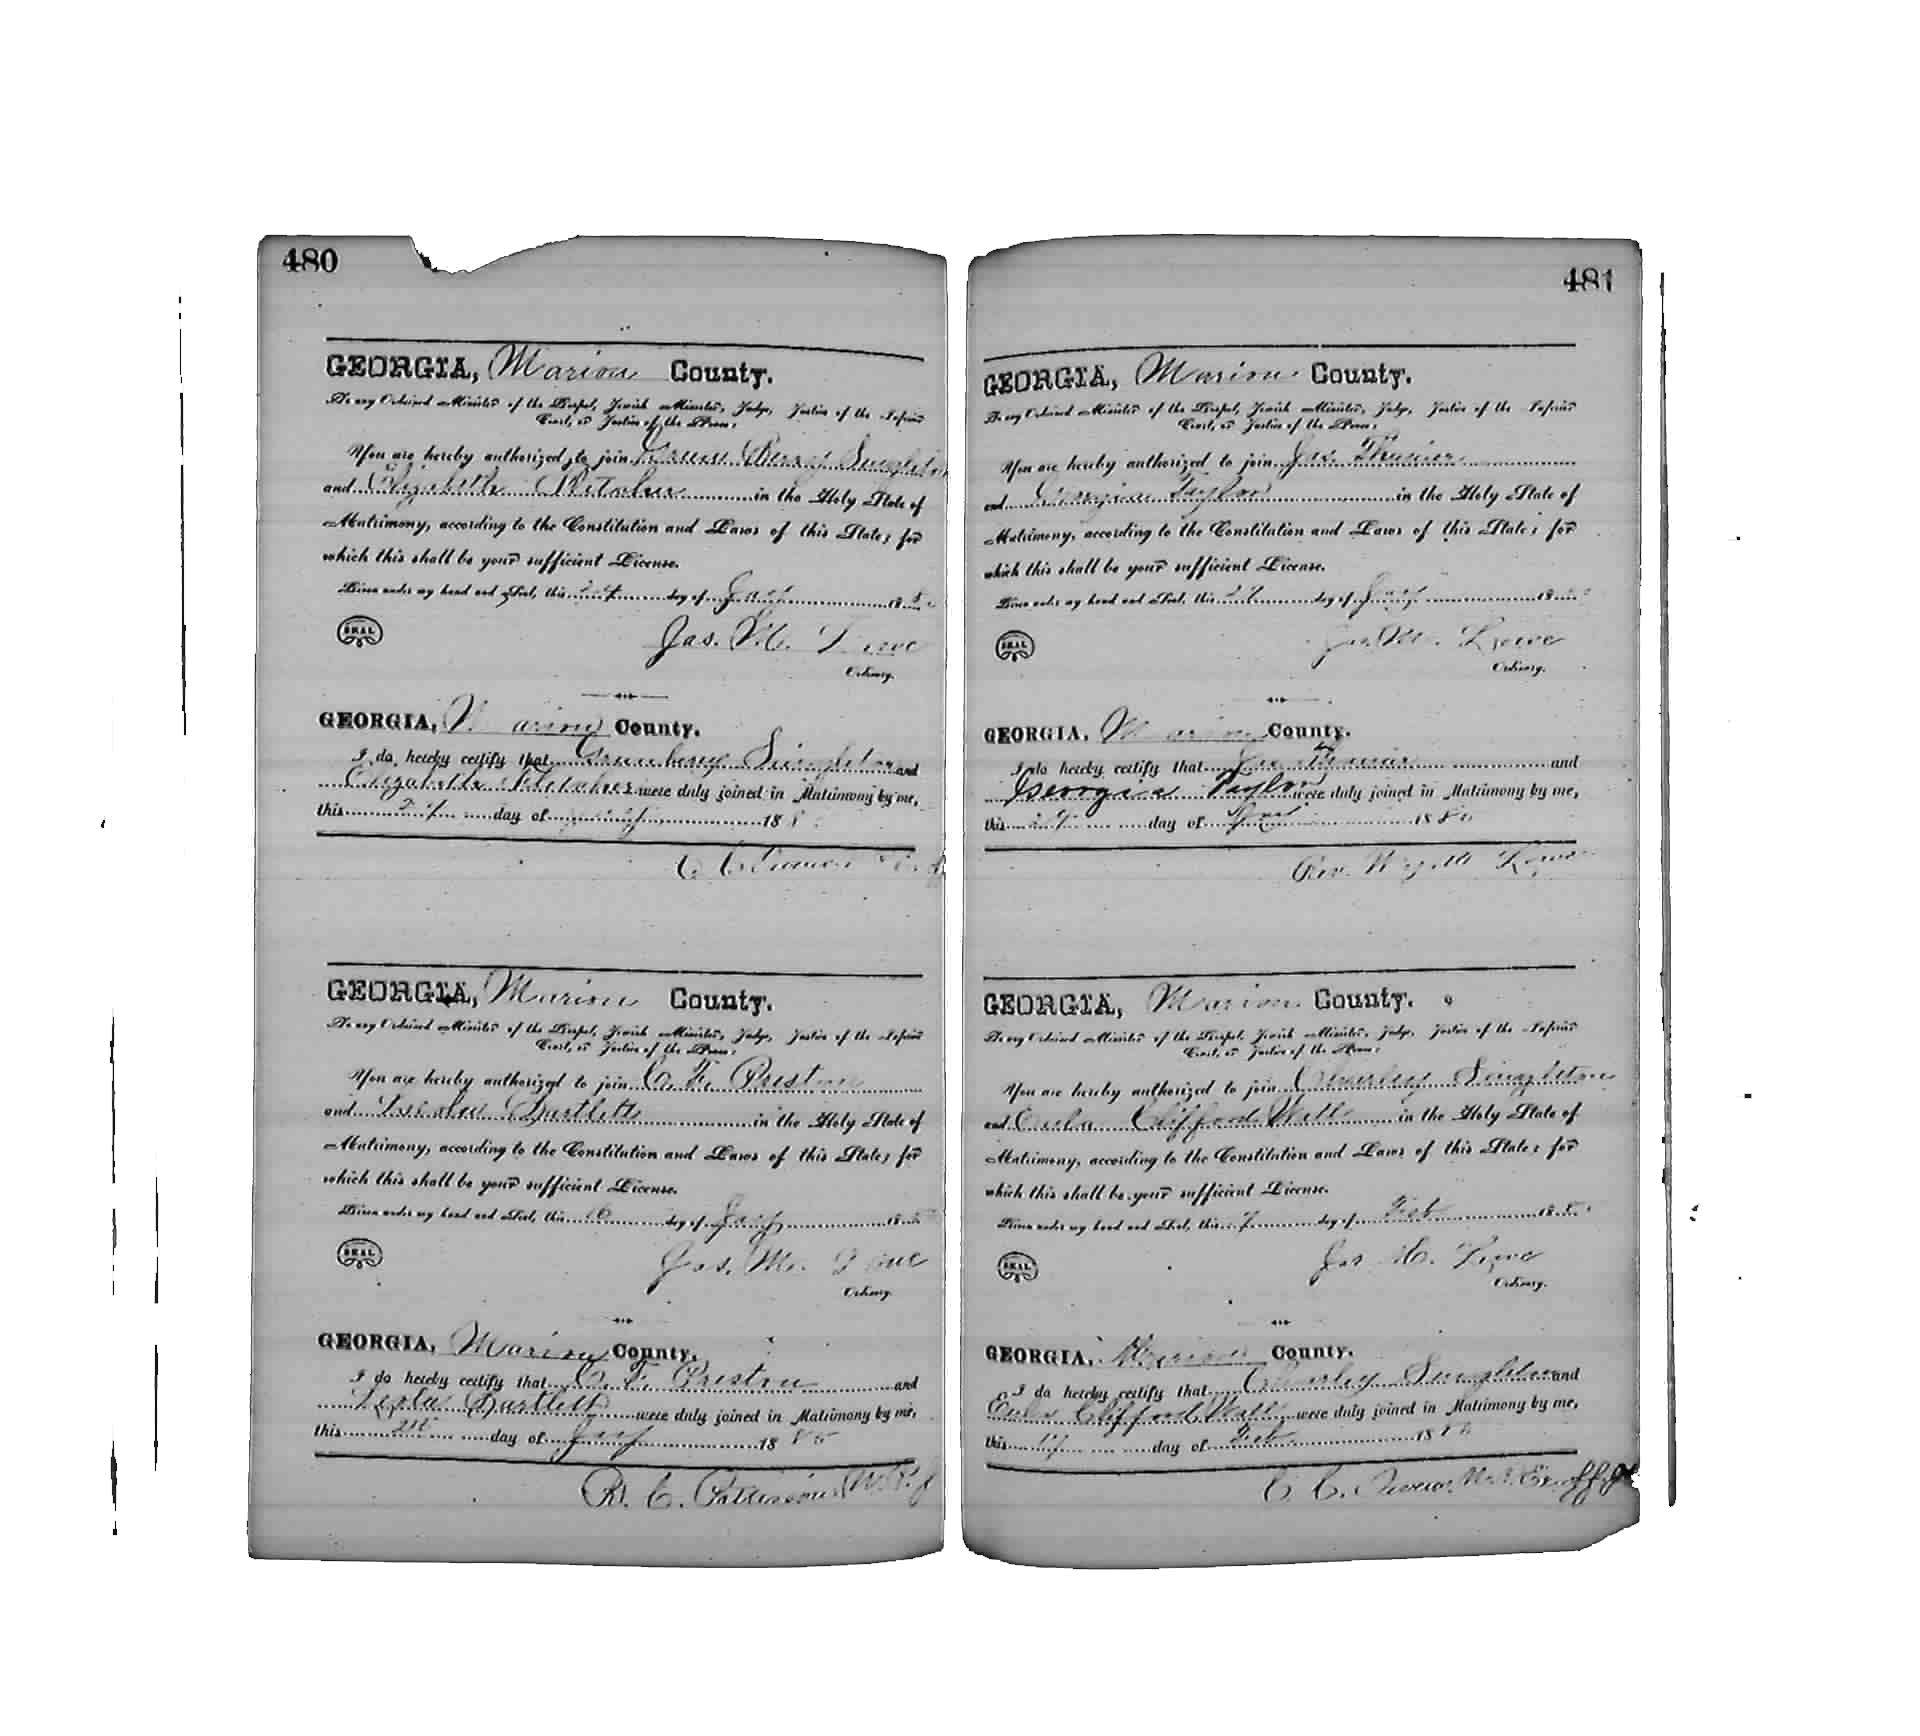 480
GEORGIA, Marion County.
To any Ordained Minister of the Gospel, Jewish Minister, Judge, Justice of the Inferior
Court, or Justice of the Peace:
You are hereby authorized to join Green Berry Singleton
and Elizabeth in the Holy State of
Matrimony, according to the Constitution and Laws of this State; for
which this shall be your sufficient License.
Given under my hand and Seal, this 24 day of Jany 188
SEAL
Jas. M. Lowe
Ordinary.
GEORGIA, Marion County.
I do hereby certify that Greenberry Singleton and
Elizabeth were duly joined in Matrimony by me,
this day of 188
C. C.
GEORGIA, Marion County.
To any Ordained Minister of the Gospel, Jewish Minister, Judge, Justice of the Inferior
Court, or Justice of the Peace:
You are hereby authorized to join C. F. Preston
and Bartlett in the Holy State of
Matrimony, according to the Constitution and Laws of this State; for
which this shall be your sufficient License.
Given under my hand and Seal, this 16 day of Jany 188
SEAL
Jas. M. Lowe
Ordinary.
GEORGIA, Marion County.
I do hereby certify that C. F. Preston and
Bartlett were duly joined in Matrimony by me,
this day of Jany 1880
R. C. Patterson
481
GEORGIA, Marion County.
To any Ordained Minister of the Gospel, Jewish Minister, Judge, Justice of the Inferior
Court, or Justice of the Peace:
You are hereby authorized to join Jas.
and Georgia Taylor in the Holy State of
Matrimony, according to the Constitution and Laws of this State; for
which this shall be your sufficient License.
Given under my hand and Seal, this 27 day of Jany 188
SEAL
Jas. M. Lowe
Ordinary.
GEORGIA, Marion County.
I do hereby certify that Jas and
Georgia Taylor were duly joined in Matrimony by me,
this 29 day of Jany 1880
Rev. Lowe
GEORGIA, Marion County.
To any Ordained Minister of the Gospel, Jewish Minister, Judge, Justice of the Inferior
Court, or Justice of the Peace:
You are hereby authorized to join Charley Singleton
and Eula Clifford Wall in the Holy State of
Matrimony, according to the Constitution and Laws of this State; for
which this shall be your sufficient License.
Given under my hand and Seal, this 7 day of Feb 188
SEAL
Jas. M. Lowe
Ordinary.
GEORGIA, Marion County.
I do hereby certify that Charley Singleton and
Eula Clifford Wall were duly joined in Matrimony by me,
this 17 day of Feb. 1880
C. C.